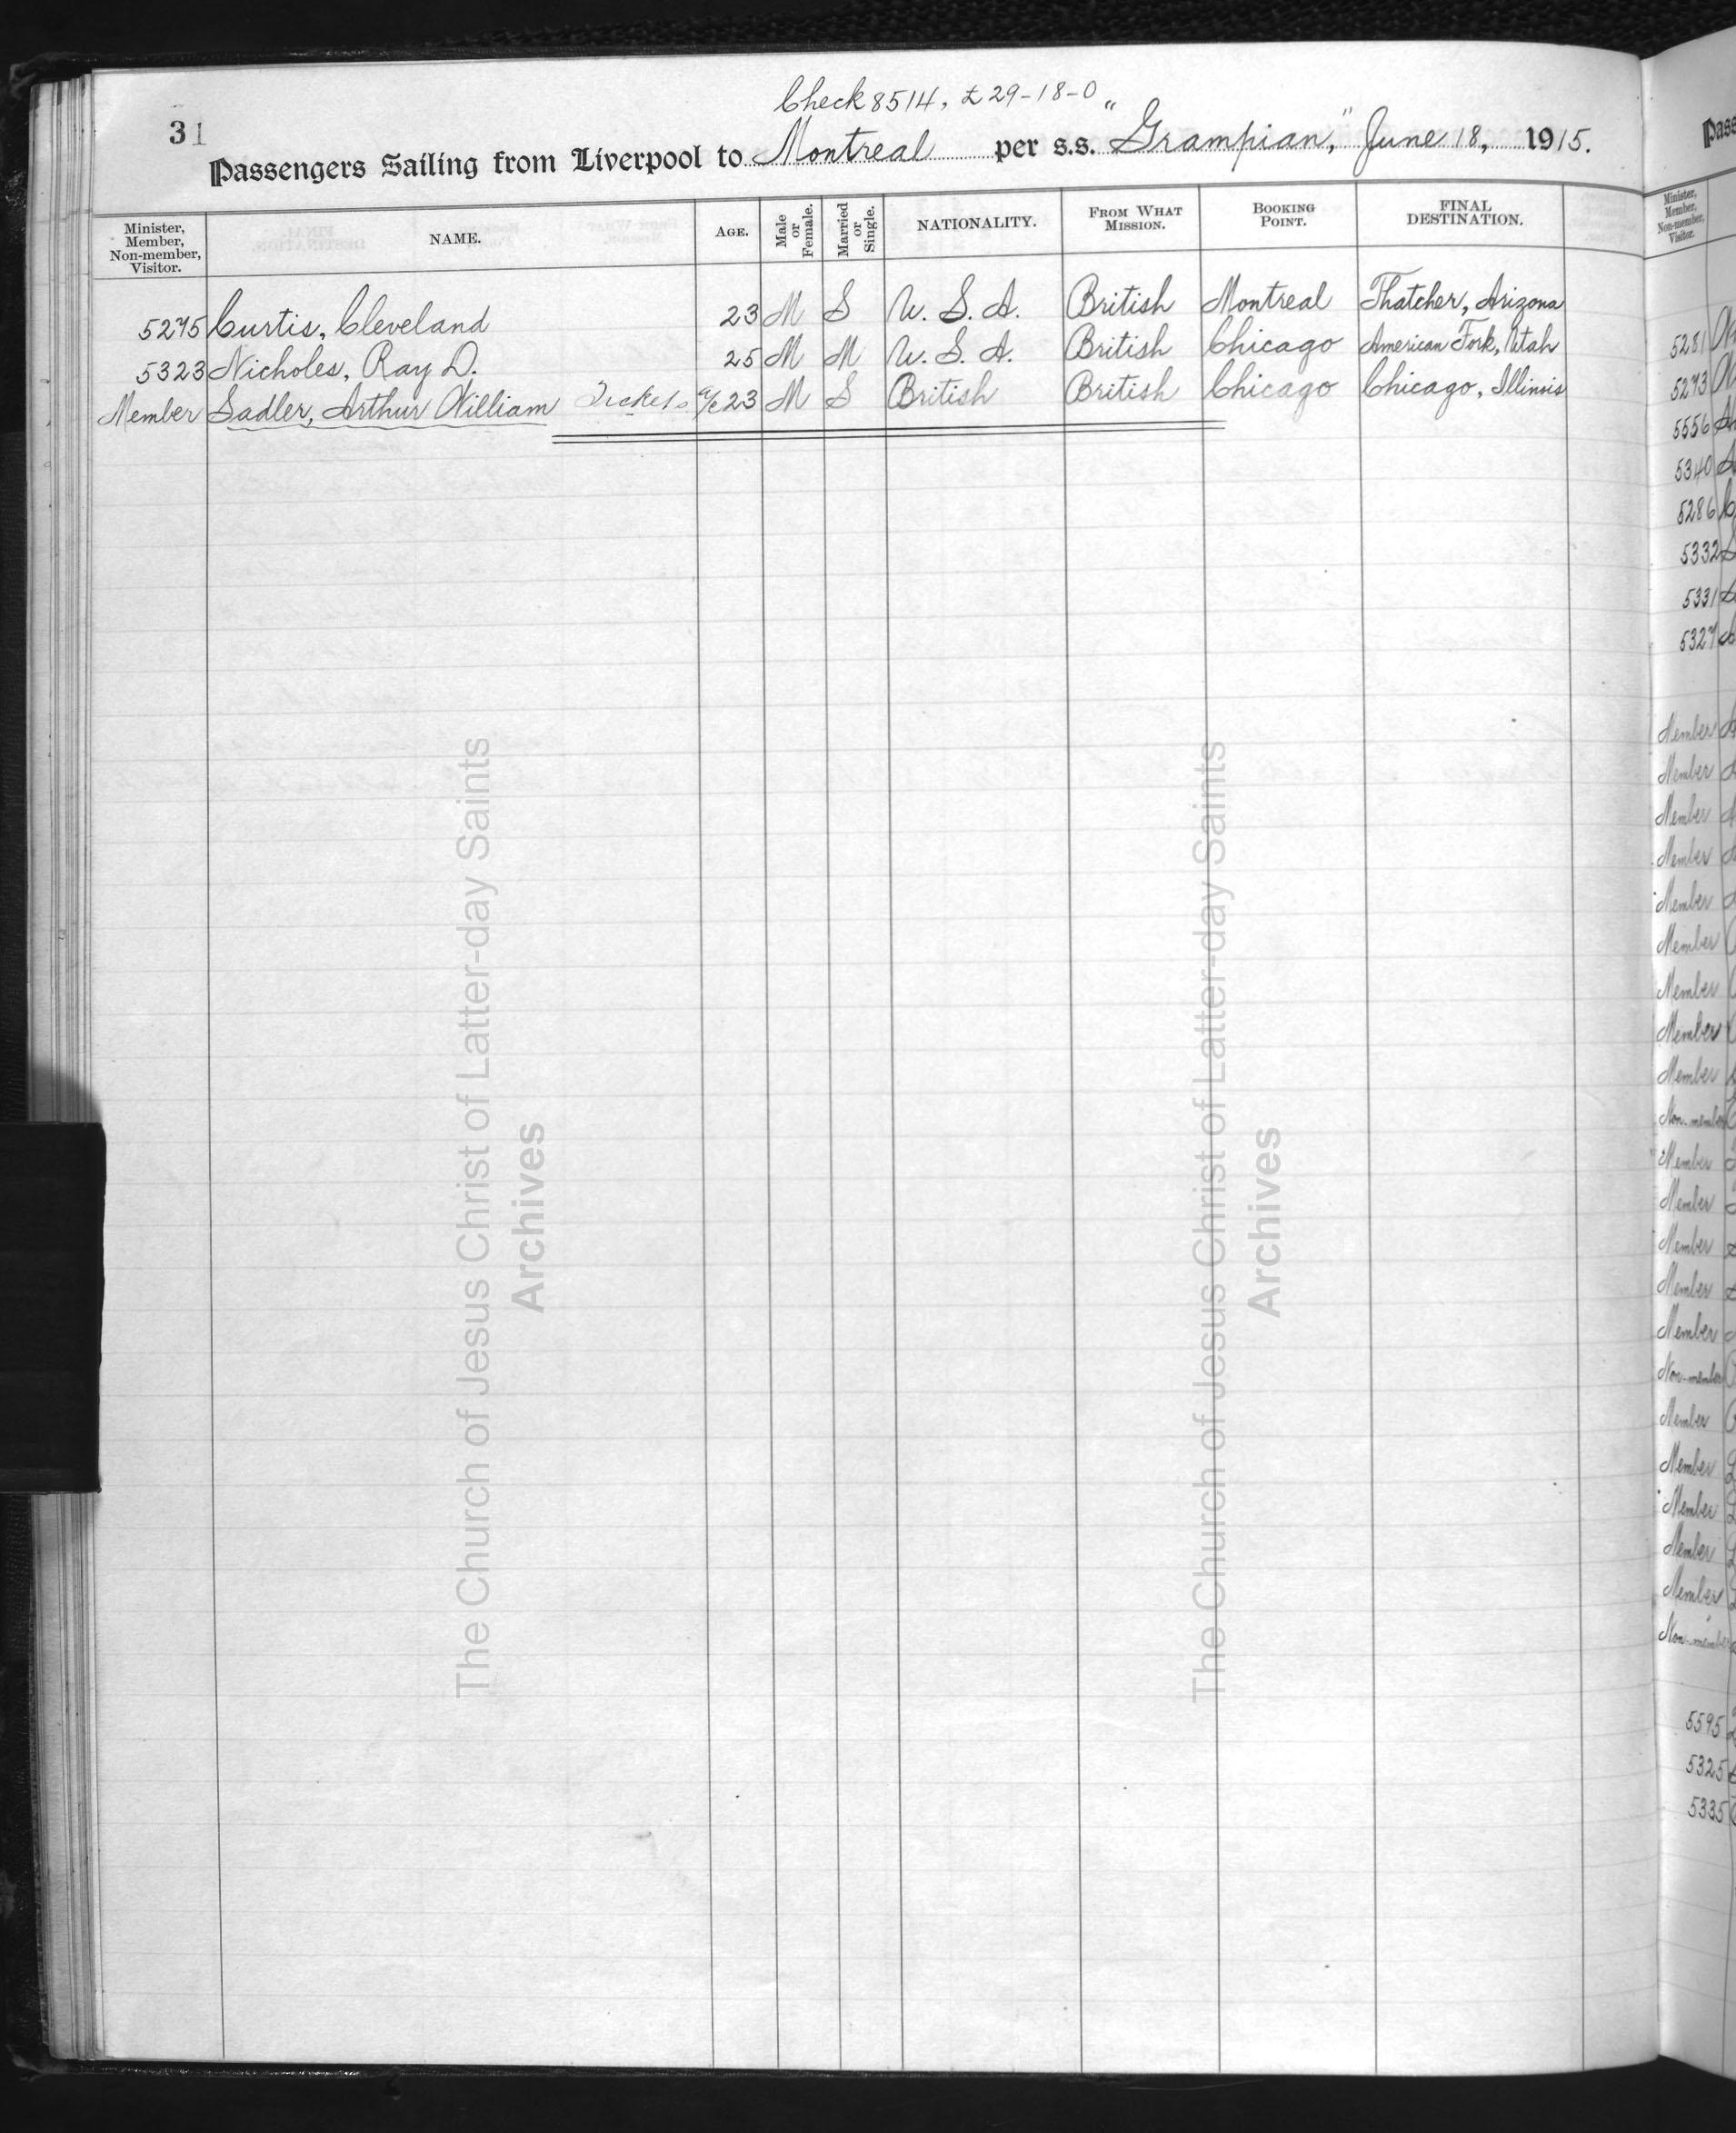 Check 8514, £29-18-0
31
Passengers Sailing from Liverpool to Montreal per s.s. "Grampian," June 18, 1915.
Minister, Member, Non-member, Visitor. NAME. AGE. Male or Female. Married or Single. NATIONALITY. FROM WHAT MISSION. BOOKING POINT. FINAL DESTINATION.
5275 Curtis, Cleveland 23 M S U. S. A. British Montreal Thatcher, Arizona
5323 Nicholes, Ray D. 25 M M U. S. A. British Chicago American Fork, Utah
Member Sadler, Arthur William Tickets a/c 23 M S British British Chicago Chicago, Illinois
The Church of Jesus Christ of Latter-day Saints
Archives
The Church of Jesus Christ of Latter-day Saints
Archives
Pass
Minister, Member, Non-member, Visitor.
5281
5273
5556
5340
5286
5332
5331
5327
Member
Member
Member
Member
Member
Member
Member
Member
Member
Non-member
Member
Member
Member
Member
Member
Non-member
Member
Member
Member
Member
Member
Non-member
5595
5325
5335